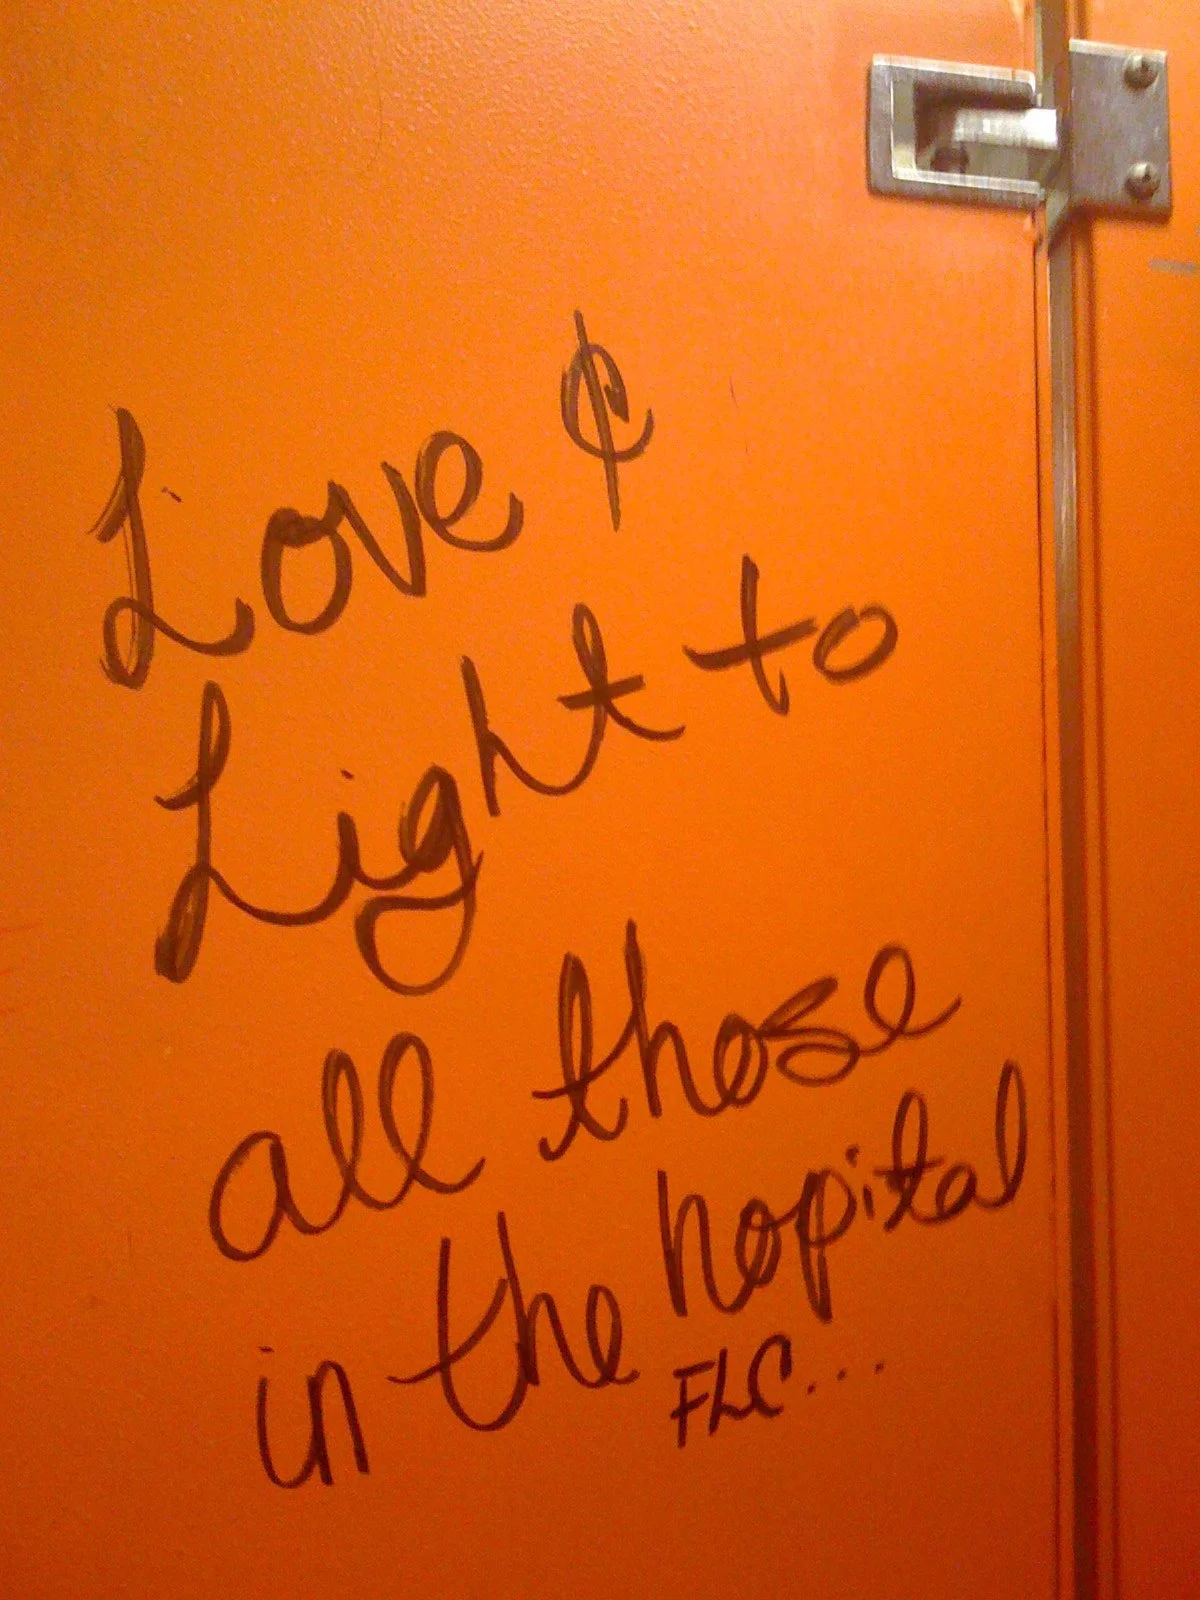 Love ¢
Light to
all those
in the hopital
FLC...